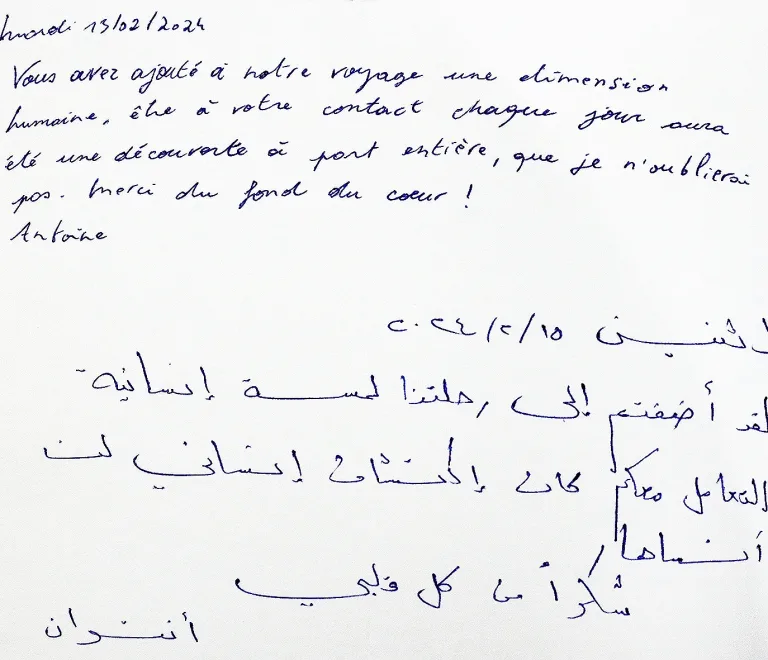 mardi 13/02/2024
Vous avez ajouté à notre voyage une dimension
humaine, être à votre contact chaque jour aura
été une découverte à part entière, que je n'oublierai
pas. Merci du fond du cœur !
Antoine
اثنين ١٥/٢/٢٠٢٤
لقد أضفتم إلى رحلتنا لمسة إنسانية
التعامل معكم كان إكتشاف إنساني لن
أنساها
شكراً من كل قلبي
أنتوان